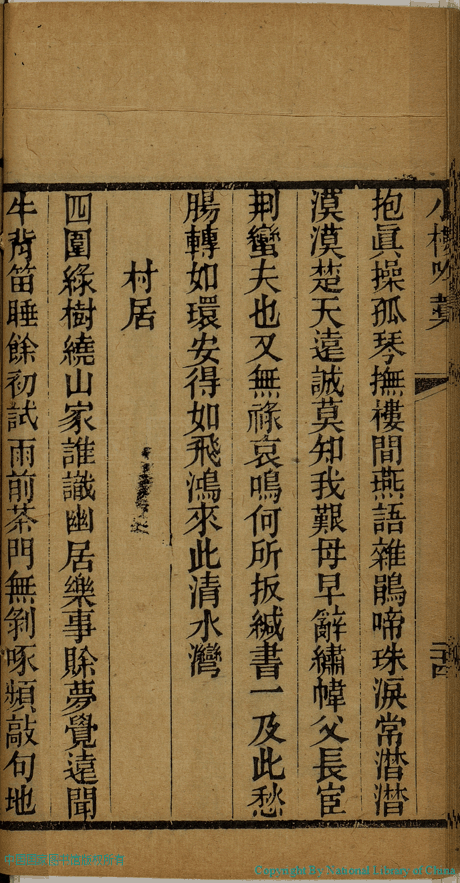 小樓吟藁
抱眞操孤琴撫樓間燕語雜鵑啼珠淚常潸潸
漠漠楚天遠誠莫知我艱母早辭繡幃父長宦
荆蠻夫也又無祿哀鳴何所扳緘書一及此愁
腸轉如環安得如飛鴻來此清水灣
村居
四圍綠樹繞山家誰識幽居樂事賒夢覺遠聞
牛背笛睡餘初試雨前茶門無剝啄頻敲句地
Copyright By National Library of China